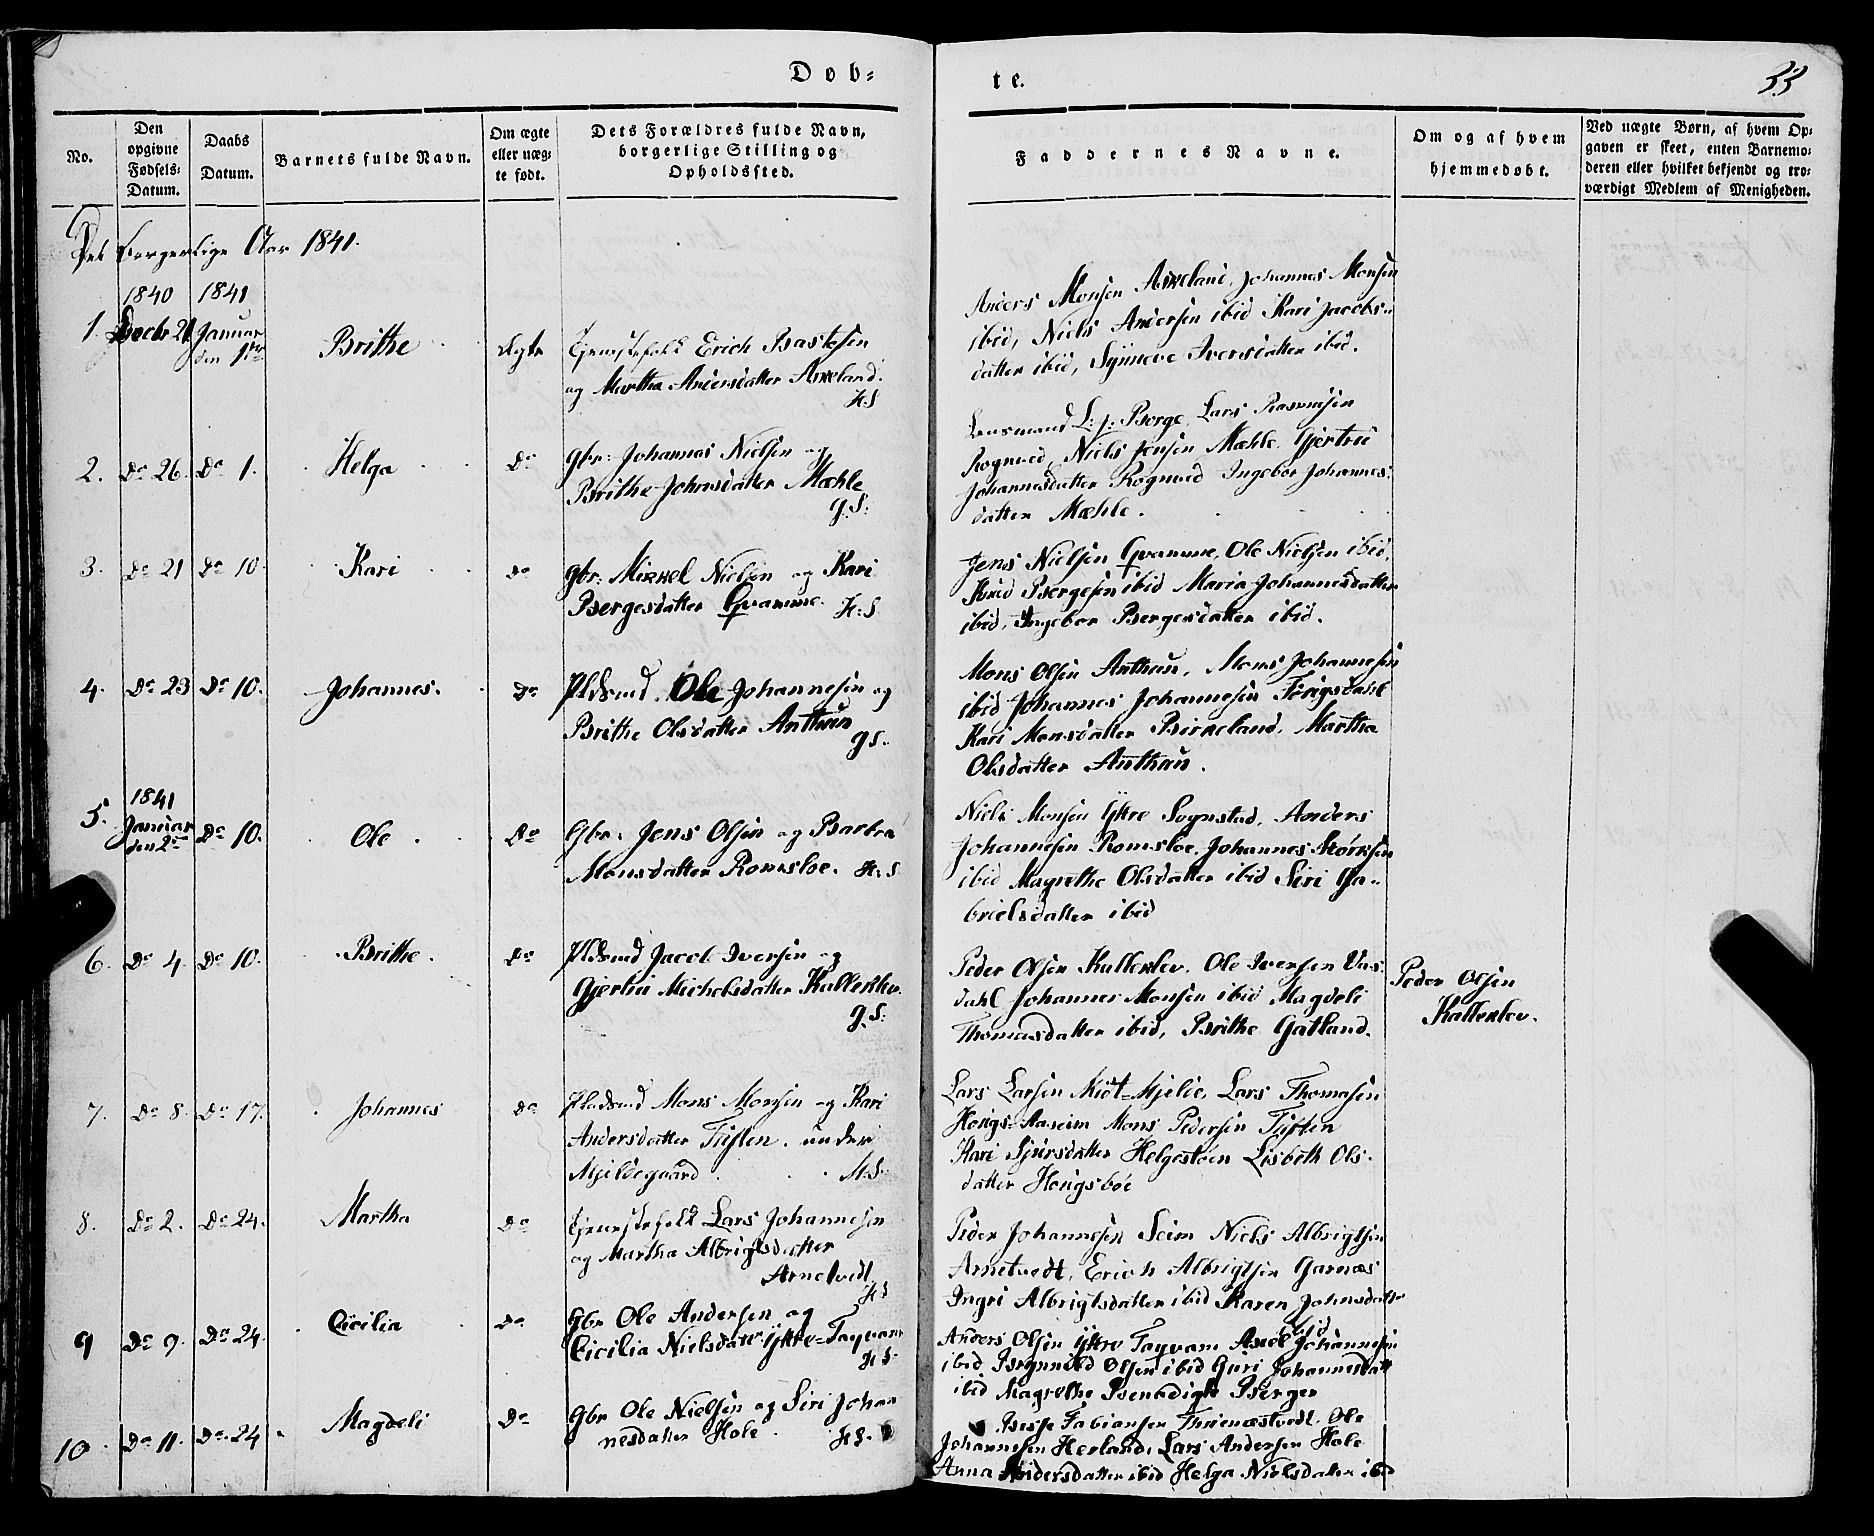 Døb-
te.
33
No.
Den
opgivne
Fødsels-
Datum.
Daabs
Datum.
Barnets fulde Navn.
Om ægte
eller uæg-
te født.
Dets Forældres fulde Navn,
borgerlige Stilling og
Opholdssted.
Faddernes Navne.
Om og af hvem
hjemmedøbt.
Ved uægte Børn, af hvem Op-
gaven er skeet, enten Barnemo-
deren eller hvilket bekjendt og tro-
værdigt Medlem af Menigheden.
Det borgerlige Aar 1841.
1840 1841
1. Decbr 21 Januar
den 1ste
Brithe
Ægte
Tjenestefolk Erich
og Martha Andersdatter Askeland.
H.S
Anders Monsen Askeland, Johannes Monsen
ibid, Niels Andersen ibid Kari Jacobs-
datter ibid, Synneve Iversdatter ibid.
2. Do 26. Do 1. Helga Do
Gbr: Johannes Nielsen og
Brithe Johnsdatter Mæhle
G.S:
Lensmand L. J. Borge, Lars Rasmusen
Rognved, Niels Jensen Mæhle, Gjertrud
Johannesdatter Rognved Ingebor Johannes-
datter Mæhle.
3. Do 21 Do 10. Kari Do
Gbr: Mikkel Nielsen og Kari
Bergesdatter Gvamme. H:S
Jens Nielsen Gvamme, Ole Nielsen ibid,
Knud Bergesen ibid Maria Johannesdatter
ibid, Ingebor Bergesdatter ibid.
4. Do 23 Do 10. Johannes. Do
Pldsmd. Ole Johannesen og
Brithe Olsdatter Anthun
G.S.
Mons Olsen Anthun, Mons Johannesen
ibid Johannes Johannesen
Kari Monsdatter Birkeland, Martha
Olsdatter Anthun.
1841
5. Januar
den 2den
Do 10. Ole. Do
Gbr. Jens Olsen og Barbra
Monsdatter Romsloe. H:S
Niels Monsen Ytre Sognstad, Anders
Johannesen Romsloe, Johannes Størksen
ibid Magrethe Olsdatter ibid Siri Ga-
brielsdatter ibid
6. Do 4. Do 10. Brithe. Do
Pldsmd Jacob Iversen og
Gjertrud Michelsdatter Kalleklev.
G.S:
Peder Olsen Kalleklev. Ole Iversen
dahl Johannes Monsen ibid Magdeli
Thomasdatter ibid, Brithe Gatland.
Peder Olsen
Kalleklev.
7. Do 8. Do 17. Johannes Do
Pladsmd Mons Monsen og Kari
Andersdatter Tuften. under
Mjeldegaard. H.S.
Lars Larsen Mjelde, Lars Thomasen
Mons Pedersen Tuften
Kari Sjursdatter Helgestøen Lisbeth Ols-
datter Hougsbøe
8. Do 2. Do 24. Martha Do
Tjenestefolk Lars Johannesen
og Martha Albrigtsdatter
Arnetvedt.
H.S
Peder Johannesen Seim Niels Albrigtsen
Arnetvedt, Erich Albrigtsen Garnæs
Ingri Albrigtsdatter ibid Karen Johnsdatter
ibid
9 Do 9. Do 24. Cicilia Do
Gbr Ole Andersen og
Cicilia Nielsdatr Ytre-Taqvam
H.S.
Anders Olsen Ytre Taqvam Johannesen
ibid Brynnild Olsen ibid Guri Johannesdatt
ibid Magrethe Benedigte Berger
10. Do 11. Do 24 Magdeli Do
Gbr Ole Nielsen og Siri Johan
nesdatter Hole. H.S.
Fabiansen Ole
Johannesen Herland, Lars Andersen Hole
Anna Andersdatter ibid Helga Nielsdatter ibid